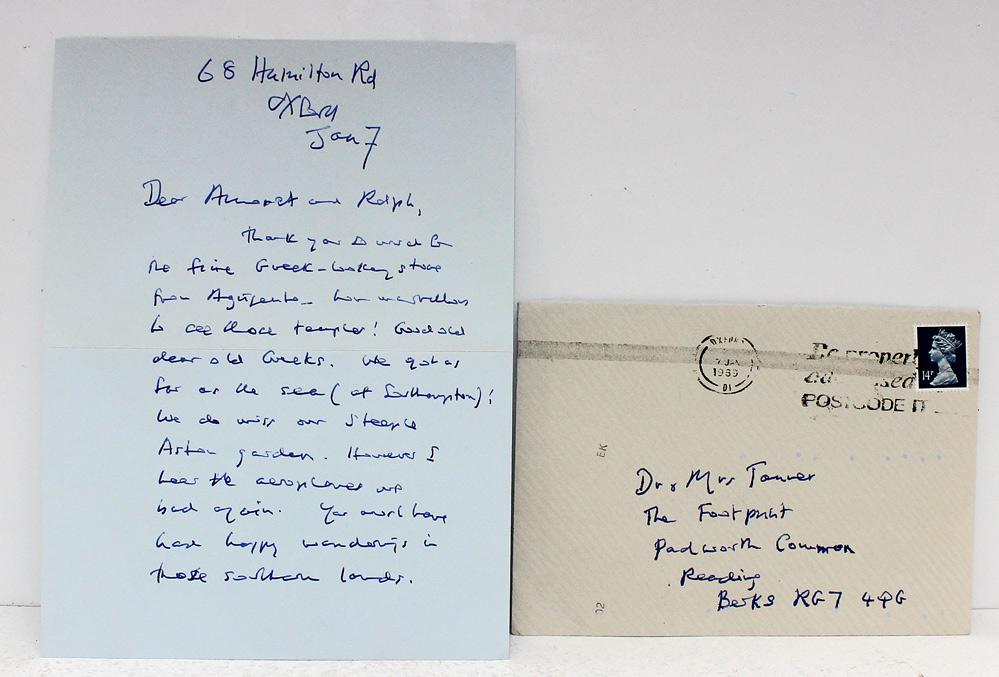 68 Hamilton Rd
Jan 7
Dear and Ralph,
Thank you
the fine Greek-looking stone
from how marvellous
to see those temples! Good old
dear old Greeks. We got as
far as the sea (at Southampton)!
We do miss our Steeple
Aston garden. However I
hear the aeroplanes are
bad again. You must have
had happy wanderings in
those southern lands.
OXFORD
7 JAN
1988
DI
Be properly
POSTCODE IT
14
EK
02
Dr & Mrs Tanner
The Footprint
Padworth Common
Reading
Berks RG7 4QG